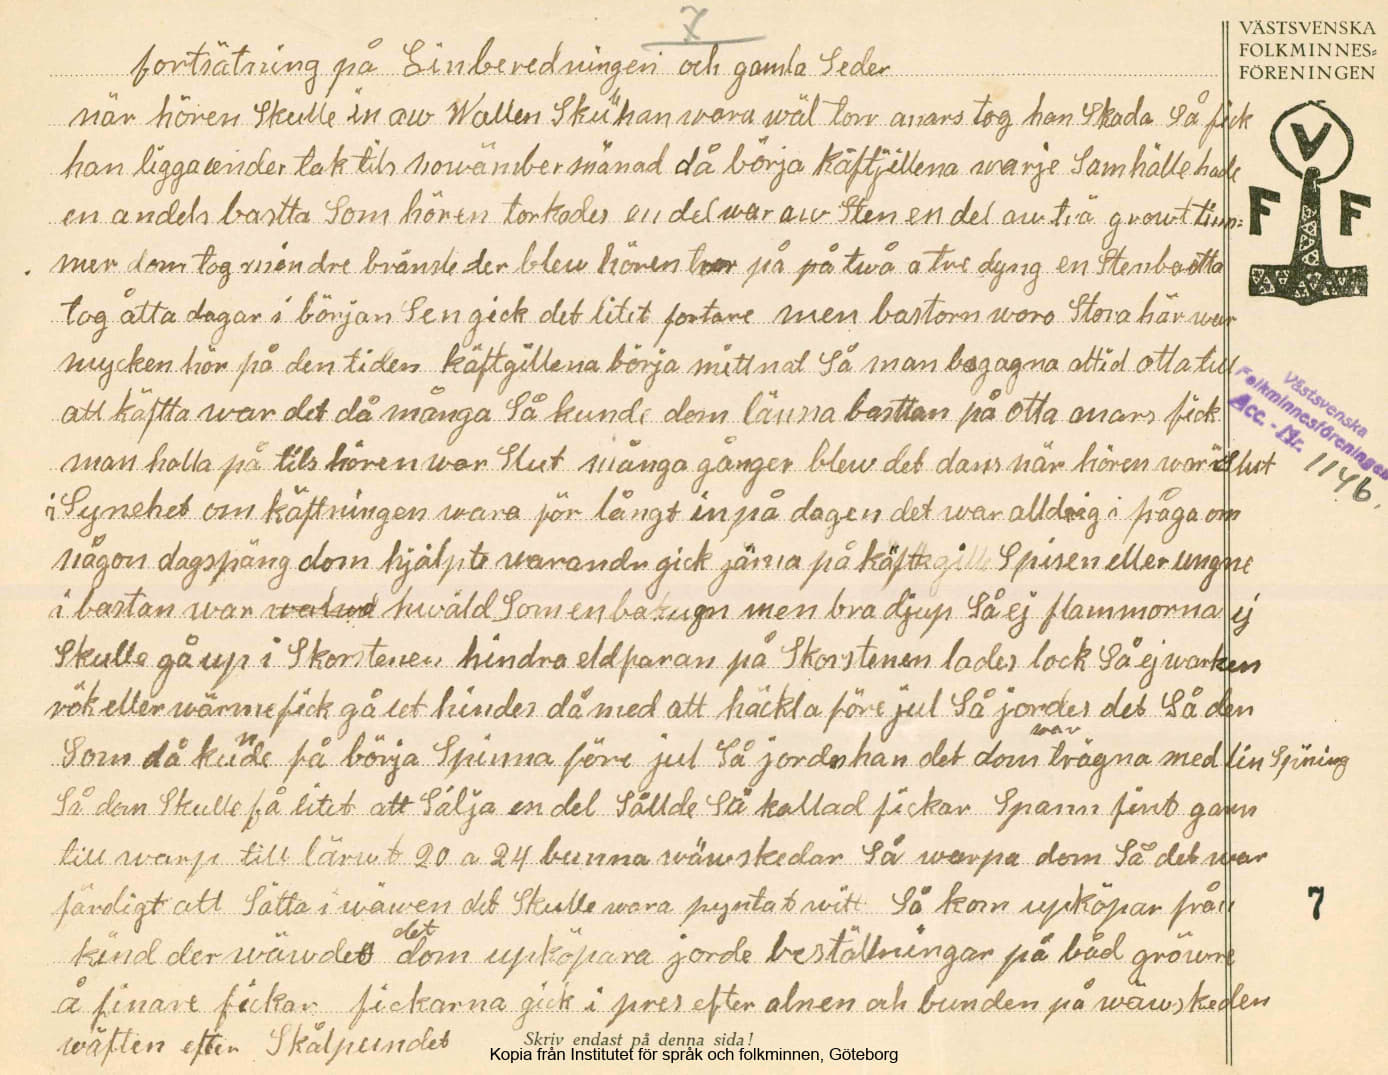 7
VÄSTSVENSKA
FOLKMINNES=
FÖRENINGEN
V
F F
fortsätning på Linberedningen och gamla Seder
när hören Skulle in aw Wallen Sku han wara wäl torr anars tog han Skada Så fick
han ligga under tak tils nowämber månad då börja käftjillena warje Samhälle hade
en andels bastta Som hören torkades en del war aw Sten en del aw trä growt tim=
mer dom tog mindre bränsle der blew hören torr på på twå a tre dyng en Stenbastta
tog åtta dagar i början Sen gick det litet fortare men bastorn woro Stora här war
mycken hör på den tiden käftgillena börja mittnat Så man begagna altid otta till
att käftta war det då många Så kunde dom lämna basttan på otta anars fick
man halla på tils hören war Slut många gånger blew det dans när hören war Slut
i Synehet om käftningen wara för långt in på dagen det war alldrig i fråga om
någon dagspäng dom hjälpte warandr gick jäma på käfte gille Spisen eller ungne
i bastan war hwäld Som en bakugn men bra djup Så ej flammorna ej
Skulle gå up i Skorstenen hindra eldfaran på Skorstenen lades lock Så ej warken
rök eller wärme fick gå ut hindes då med att häckla före jul Så jordes det Så den
Som då kunde få börja Spinna före jul Så jorde han det dom war trägna med lin Spining
Så dom Skulle få litet att Sälja en del Sållde Så kallad fickar Spann fint garn
till warp till lärwt 20 a 24 bunna wäwskedar Så warpa dom Så det war
färdigt att Sätta i wäwen det Skulle wara pyntat witt Så kom upköpar från
kind der wäwdes det dom upköpara jorde beställningar på båd gröwre
å finare fickar fickarna gick i pres efter alnen och bunden på wäwskeden
wäften efter Skålpundet
Västsvenska
Folkminnesföreningen
Acc. - Nr. 1146.
7
Skriv endast på denna sida!
Kopia från Institutet för språk och folkminnen, Göteborg